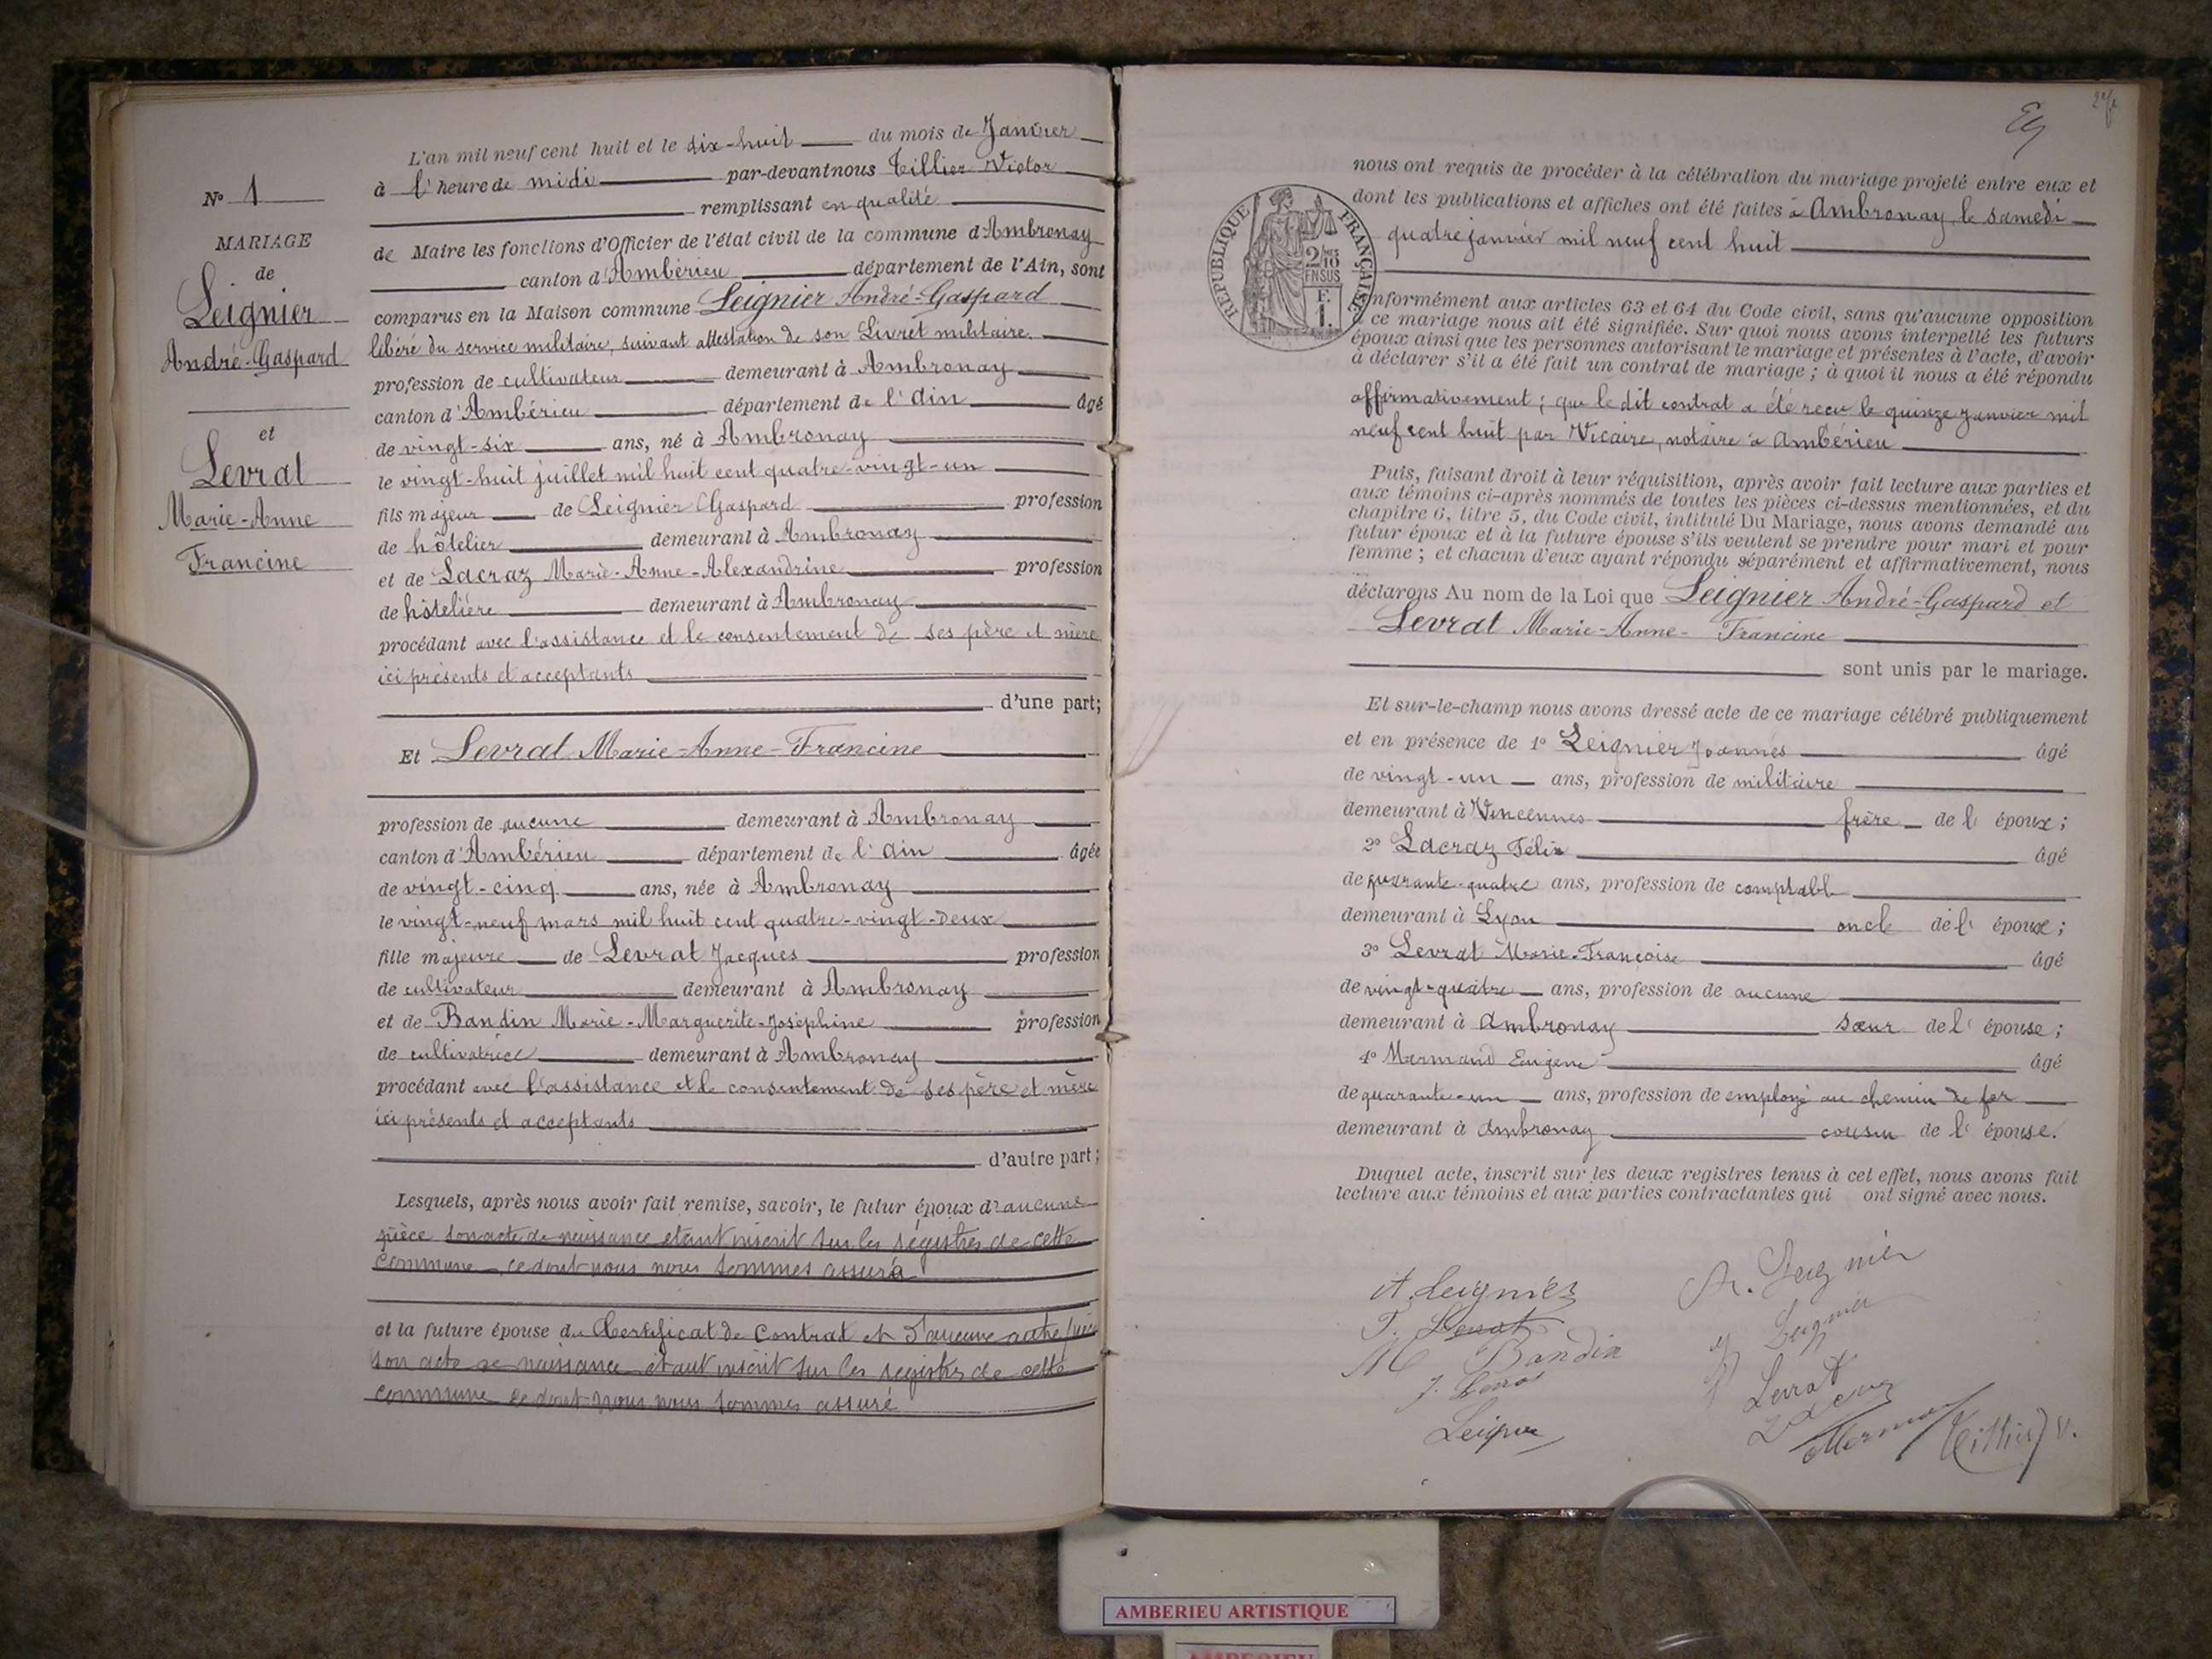 N° 1
MARIAGE
de
Leignier
André-Gaspard
et
Levrat
Marie-Anne
Francine
L'an mil neuf cent huit et le dix-huit du mois de Janvier
à l'heure de midi par-devant nous Tillier Victor
remplissant en qualité
de Maire les fonctions d'Officier de l'état civil de la commune d'Ambronay
canton d'Ambérieu département de l'Ain, sont
comparus en la Maison commune Leignier André-Gaspard
libéré du service militaire, suivant attestation de son Livret militaire.
profession de cultivateur demeurant à Ambronay
canton d'Ambérieu département de l'Ain âgé
de vingt-six ans, né à Ambronay
le vingt-huit juillet mil huit cent quatre-vingt-un
fils majeur de Leignier Gaspard profession
de hôtelier demeurant à Ambronay
et de Lacraz Marie-Anne-Alexandrine profession
de hôtelière demeurant à Ambronay
procédant avec l'assistance et le consentement de ses père et mère
ici présents et acceptants
d'une part;
Et Levrat Marie-Anne-Francine
profession de aucune demeurant à Ambronay
canton d'Ambérieu département de l'Ain âgée
de vingt-cinq ans, née à Ambronay
le vingt-neuf mars mil huit cent quatre-vingt-deux
fille majeure de Levrat Jacques profession
de cultivateur demeurant à Ambronay
et de Bandin Marie-Marguerite-Joséphine profession
de cultivatrice demeurant à Ambronay
procédant avec l'assistance et le consentement de ses père et mère
ici présents et acceptants
d'autre part;
Lesquels, après nous avoir fait remise, savoir, le futur époux d'aucune
pièce son acte de naissance étant inscrit sur les régistres de cette
commune, ce dont nous nous sommes assuré
et la future épouse du Certificat de Contrat et d'aucune autre
son acte de naissance étant inscrit sur les registres de cette
commune ce dont nous nous sommes assuré
RÉPUBLIQUE FRANÇAISE
2/10
EN SUS
1 F.
nous ont requis de procéder à la célébration du mariage projeté entre eux et
dont les publications et affiches ont été faites à Ambronay, le samedi
quatre janvier mil neuf cent huit
conformément aux articles 63 et 64 du Code civil, sans qu'aucune opposition
à ce mariage nous ait été signifiée. Sur quoi nous avons interpellé les futurs
époux ainsi que les personnes autorisant le mariage et présentes à l'acte, d'avoir
à déclarer s'il a été fait un contrat de mariage; à quoi il nous a été répondu
affirmativement; que le dit contrat a été reçu le quinze janvier mil
neuf cent huit par Vicaire, notaire à Ambérieu
Puis, faisant droit à leur réquisition, après avoir fait lecture aux parties et
aux témoins ci-après nommés de toutes les pièces ci-dessus mentionnées, et du
chapitre 6, titre 5, du Code civil, intitulé Du Mariage, nous avons demandé au
futur époux et à la future épouse s'ils veulent se prendre pour mari et pour
femme; et chacun d'eux ayant répondu séparément et affirmativement, nous
déclarons Au nom de la Loi que Leignier André-Gaspard et
Levrat Marie-Anne-Francine
sont unis par le mariage.
Et sur-le-champ nous avons dressé acte de ce mariage célébré publiquement
et en présence de 1° Leignier Joannès âgé
de vingt-un ans, profession de militaire
demeurant à Vincennes frère de l'époux;
2° Lacraz Félix âgé
de quarante-quatre ans, profession de comptabl
demeurant à Lyon oncle de l'époux;
3° Levrat Marie-Françoise âgé
de vingt-quatre ans, profession de aucune
demeurant à Ambronay sœur de l'épouse;
4° Mermand Eugène âgé
de quarante-un ans, profession de employé au chemin de fer
demeurant à Ambronay cousin de l'épouse.
Duquel acte, inscrit sur les deux registres tenus à cet effet, nous avons fait
lecture aux témoins et aux parties contractantes qui ont signé avec nous.
A. Leignier
A. Leignier
F. Levrat
Leignier
M Bandin
Levrat
Tillier V.
AMBERIEU ARTISTIQUE
AMBERIEU